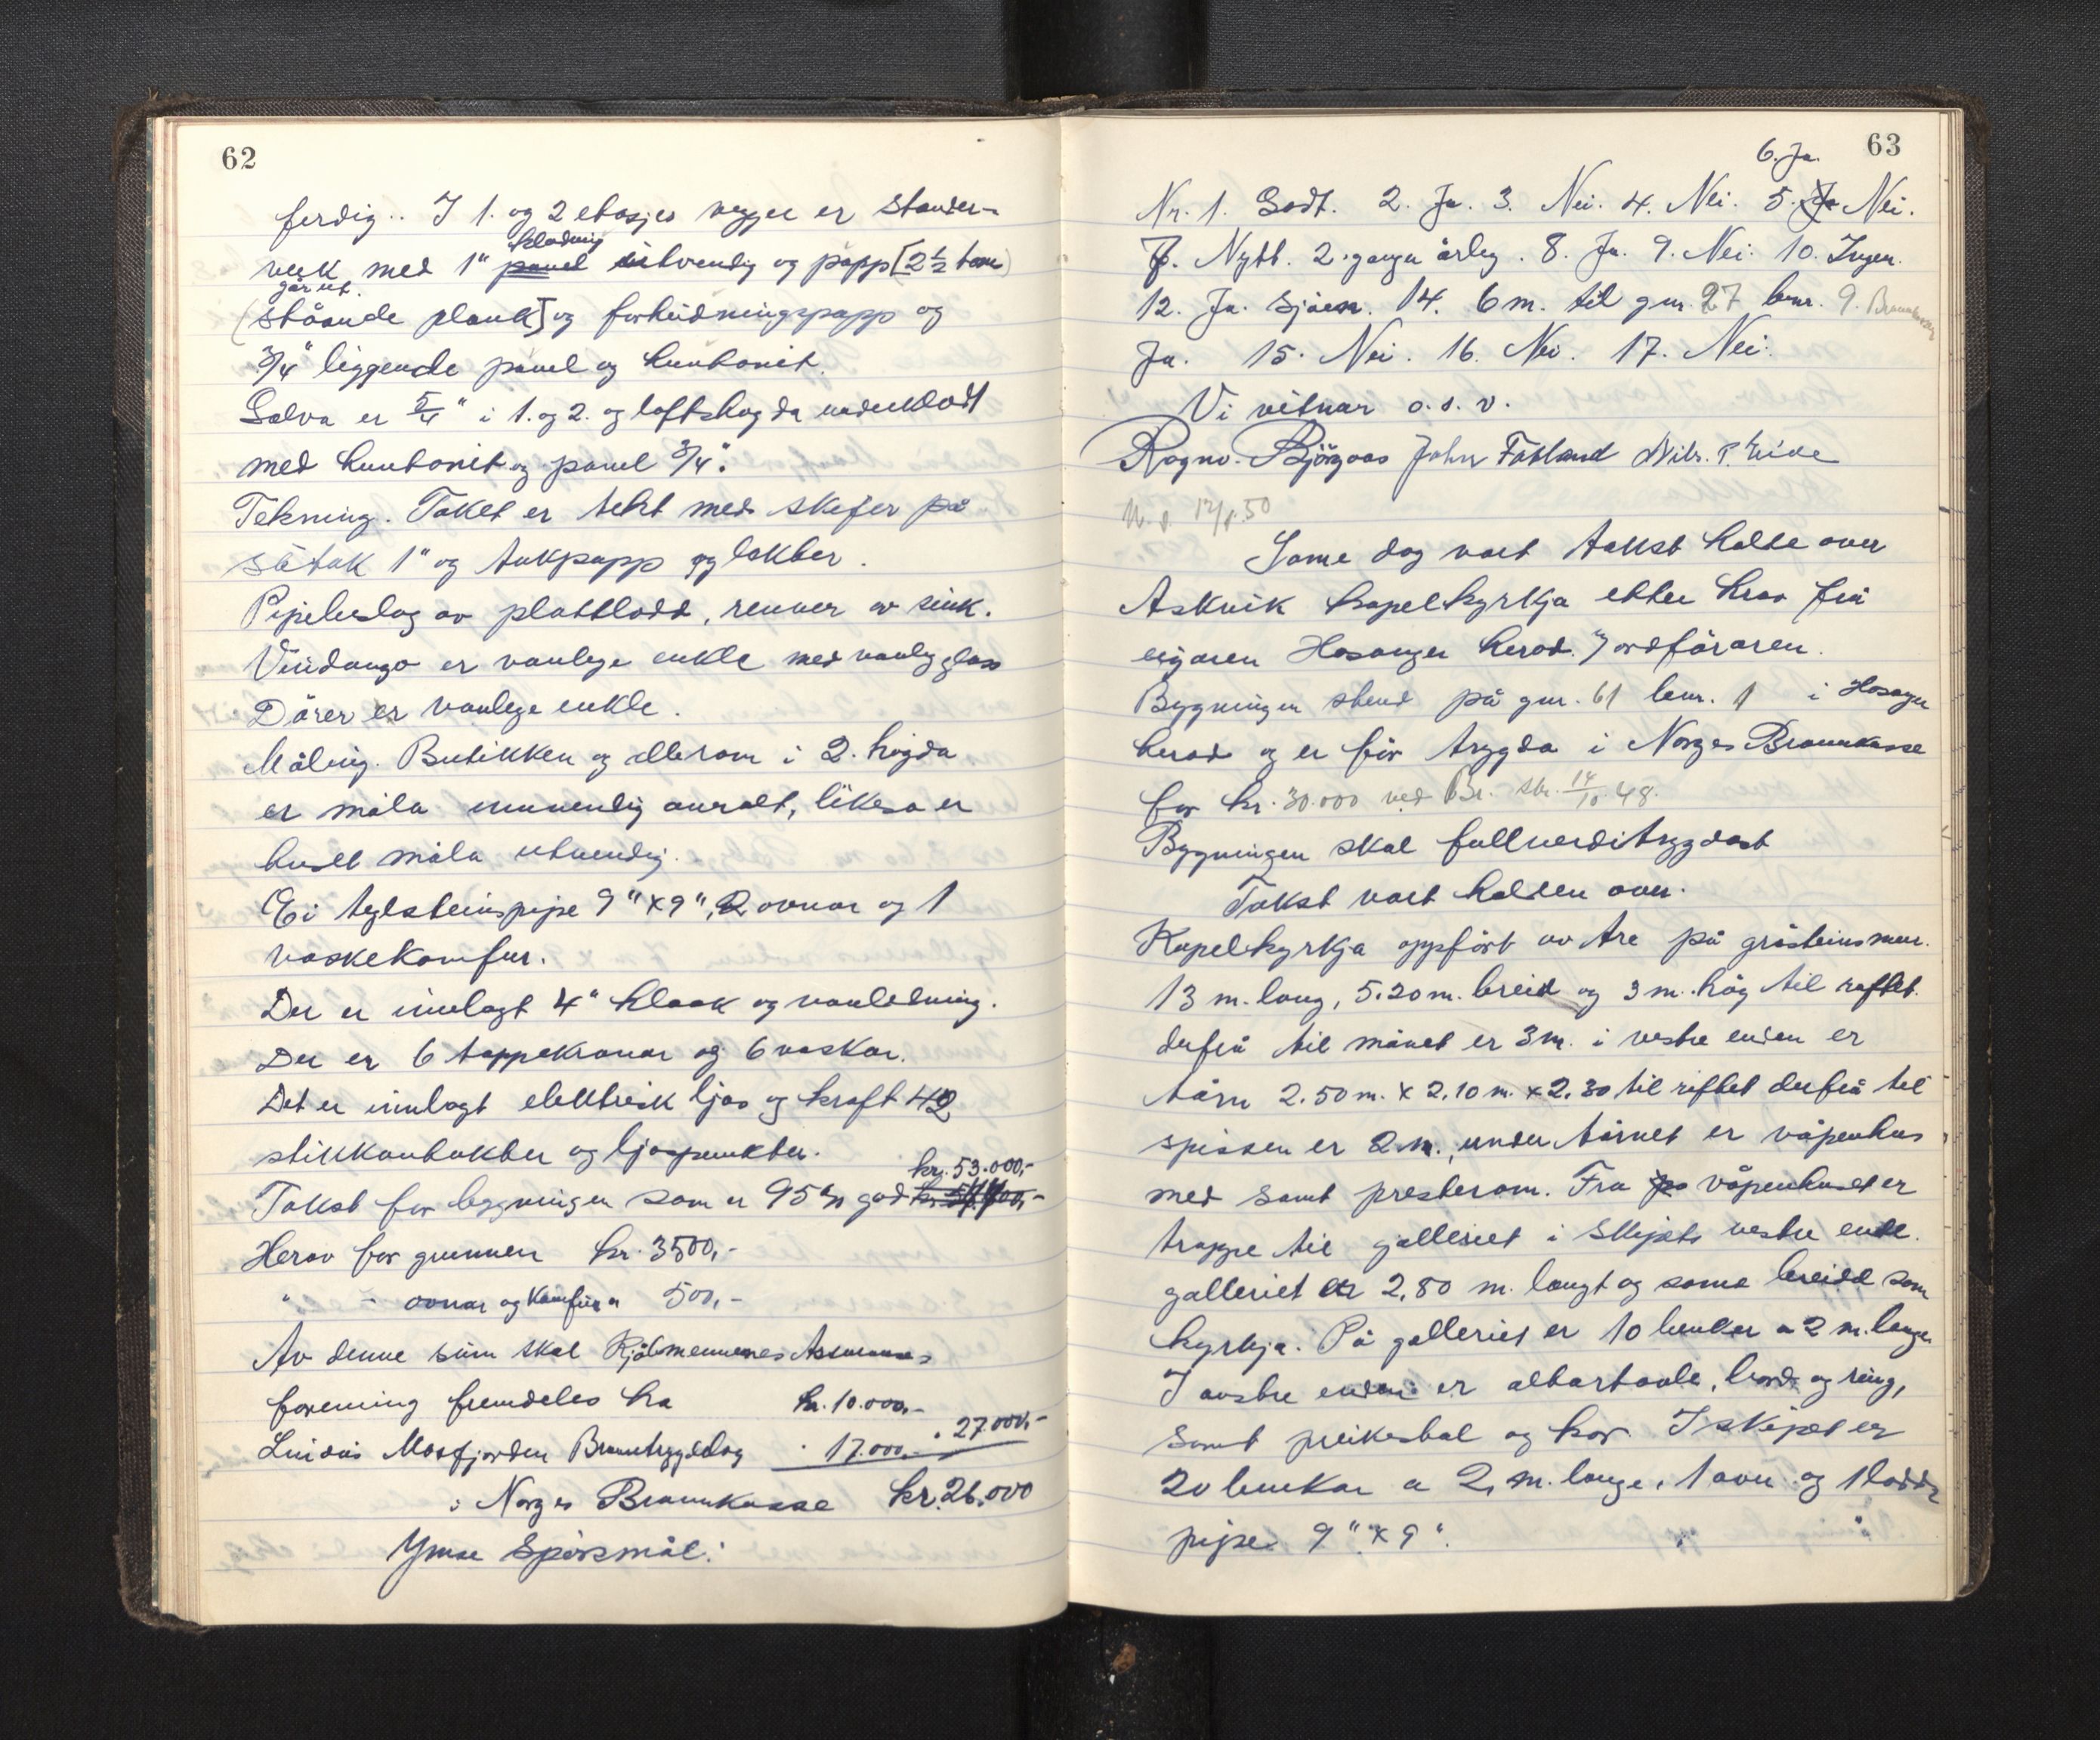 62
ferdig.. I 1. og 2 etasjes vegger er stender-
verk med 1" panel kledning utvendig og papp [2½ toms
går ut.
(ståande plank] og forhudningspapp og
3/4" liggende panel og huntonit.
Golva er 5/4" i 1. og 2. og loftshøgda underkledt
med huntonit og panel 3/4".
Tekning. Taket er tekt med skifer på
sutak 1" og takpapp og lekter.
Pipebeslag av plattlodd, renner av sink.
Vindauga er vanlege enkle med vanleg glas
Dører er vanlege enkle.
Måling. Butikken og alle rom i 2. høgda
er måla innvendig overalt, likeso er
huset måla utvendig.
Ei teglsteinspipe 9"x9", 2 ovnar og 1
vaskekomfur.
Der er innlagt 4" kloak og vanledning.
Der er 6 tappekranar og 6 vaskar.
Det er innlagt elektrisk ljos og kraft 42
stikkontakter og ljospunkter.
kr. 53.000,-
Takst for bygningen som er 95% god kr.
Herav for grunnen kr. 3500,-
" - ovnar og komfur " 500,-
Av denne sum skal Kjøbmennenes Assuranse-
forening fremdeles ha kr. 10.000,-
Lindås Masfjorden Branntrygdelag " 17.000.- " 27.000,-
i Norges Brannkasse kr. 26.000
Ymse Spørsmål:
63
6. Ja.
Nr. 1. Godt. 2. Ja. 3. Nei. 4. Nei. 5. Ja Nei.
7. Nytt. 2 ganger årleg. 8. Ja. 9. Nei. 10. Ingen.
12. Ja. Sjøen. 14. 6 m. til gnr. 27 bnr. 9.
Ja. 15. Nei. 16. Nei. 17. Nei.
Vi vitnar o.s.v.
Ragnv. Bjørgaas John Fatland Nils. P. Eide
12/1.50
Same dag vart takst halde over
Askvik kapelkyrkja etter krav frå
eigaren Hosanger herad. v/ordføraren.
Bygningen stend på gnr. 61 bnr. 1 i Hosanger
herad og er før trygda i Norges Brannkasse
for kr. 30.000 ved Br. skr. 14/10.48.
Bygningen skal fullverditrygdast
Takst vart halden over.
Kapelkyrkja oppført av tre på gråsteinsmur.
13 m. lang, 5.20 m. breid og 3 m. høg til raftet.
derfrå til mønet er 3 m. i vestre enden er
tårn 2.50 m. x 2.10 m. x 2.30 til riftet derfrå til
spissen er 2 m., under tårnet er våpenhus
med samt presterom. Fra våpenhuset er
trappe til galleriet i skipets vestre ende.
galleriet er 2,80 m. langt og same breidd som
kyrkja. På galleriet er 10 benker a 2 m. lange
I austre enden er altartavle, bord og ring,
samt preikestol og kor. I skipet er
20 benkar a 2 m. lange, 1 ovn og 1
pipe 9" x 9".